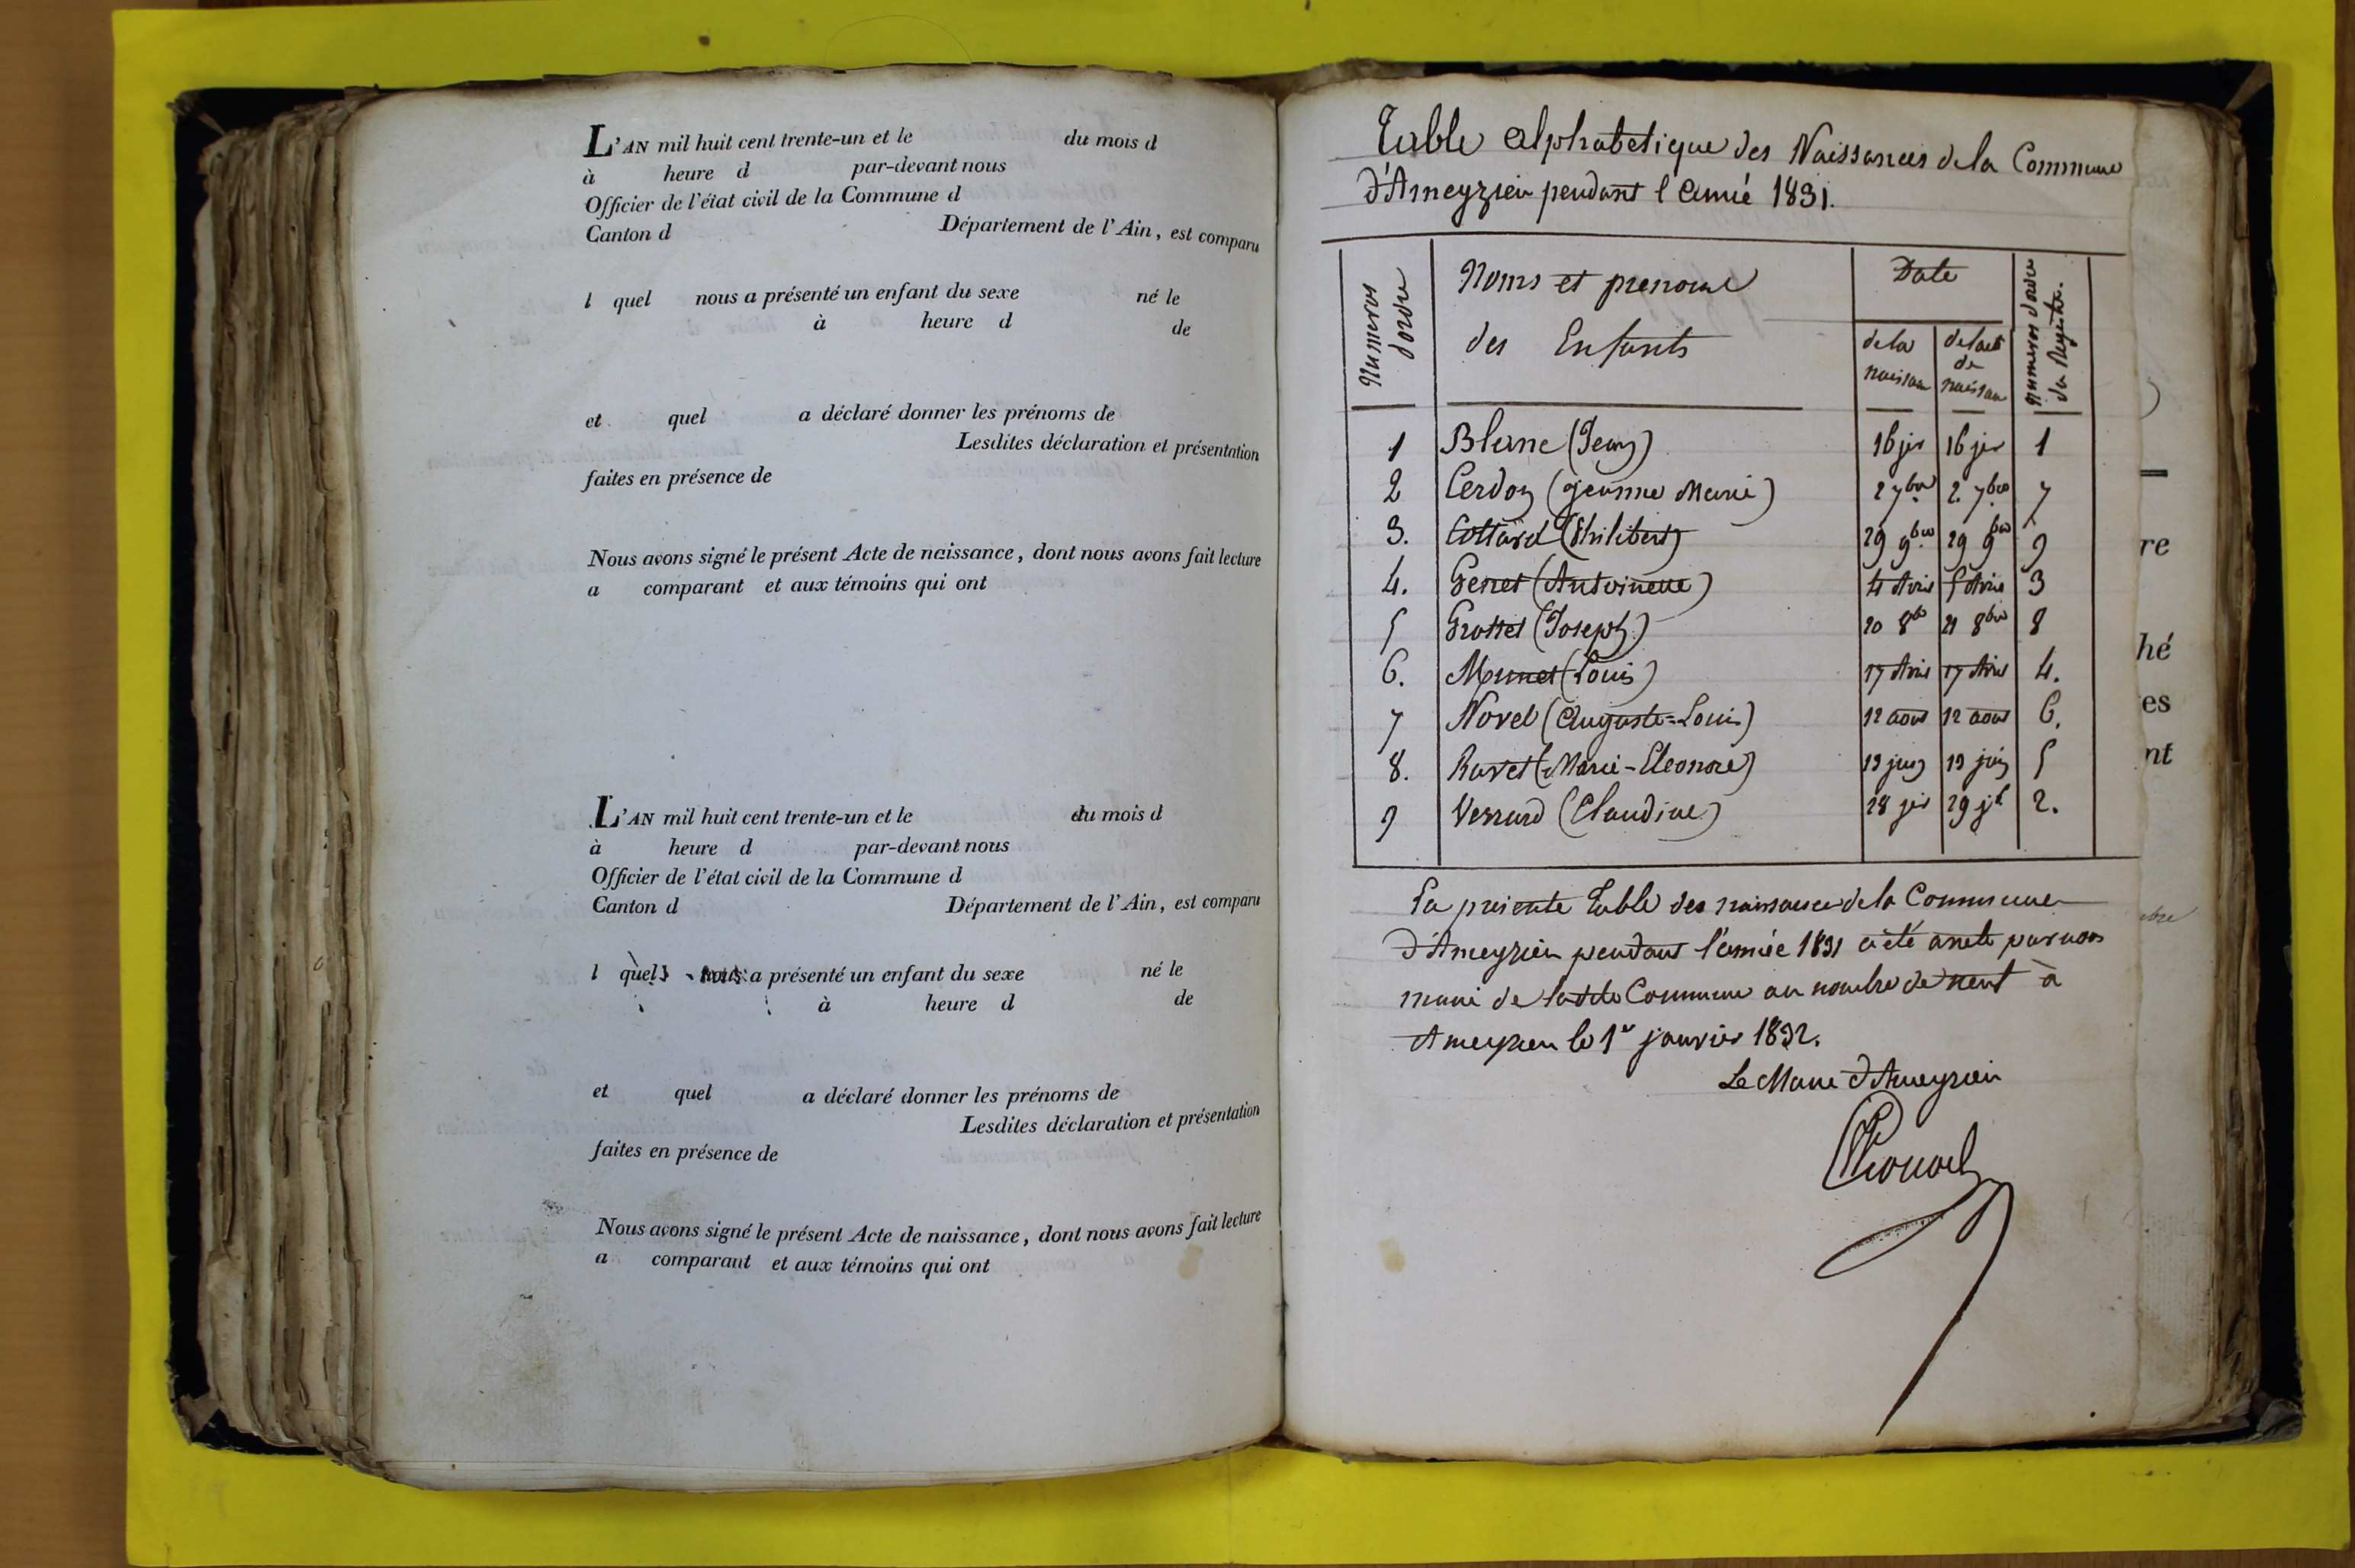 L'AN mil huit cent trente-un et le du mois d
à heure d par-devant nous
Officier de l'état civil de la Commune d
Canton d Département de l'Ain, est comparu
l quel nous a présenté un enfant du sexe né le
à heure d de
et quel a déclaré donner les prénoms de
Lesdites déclaration et présentation
faites en présence de
Nous avons signé le présent Acte de naissance, dont nous avons fait lecture
a comparant et aux témoins qui ont
L'AN mil huit cent trente-un et le du mois d
à heure d par-devant nous
Officier de l'état civil de la Commune d
Canton d Département de l'Ain, est comparu
l quel nous a présenté un enfant du sexe né le
à heure d de
et quel a déclaré donner les prénoms de
Lesdites déclaration et présentation
faites en présence de
Nous avons signé le présent Acte de naissance, dont nous avons fait lecture
a comparant et aux témoins qui ont
Table Alphabetique des Naissances de la Commune
d'Ameyzieu pendant l'année 1831.
Numeros d'ordre
Noms et prenoms
des Enfants
Date
de la naissan
de l'acte de naissan
Numeros d'ordre du Registre.
1 Blanc (Jean) 16 jer 16 jer 1
2 Cerdon (jeanne Marie) 2 7bre 2. 7bre 7
3. Cottard (Philibert) 29 9bre 29 9bre 9
4. Genet (Antoinette) 4 Avril 5 Avril 3
5 Grosset (Joseph) 20 8bre 21 8bre 8
6. Munet (Louis) 17 Avril 17 Avril 4.
7 Novel (Auguste=Louis) 12 aout 12 aout 6.
8. Ravet (Marie-Eleonore) 13 juin 13 juin 5
9 Verrard (Claudine) 28 jer 29 jr 2.
La presente Table des naissances de la Commune
d'Ameyzieu pendant l'année 1831 a été arrêté par nous
maire de ladite Commune au nombre de neuf à
Ameyzieu le 1er janvier 1832.
Le Maire d'Ameyzieu
re
hé
es
nt